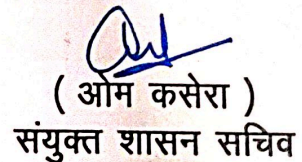 ( ओम कसेरा )
संयुक्त शासन सचिव